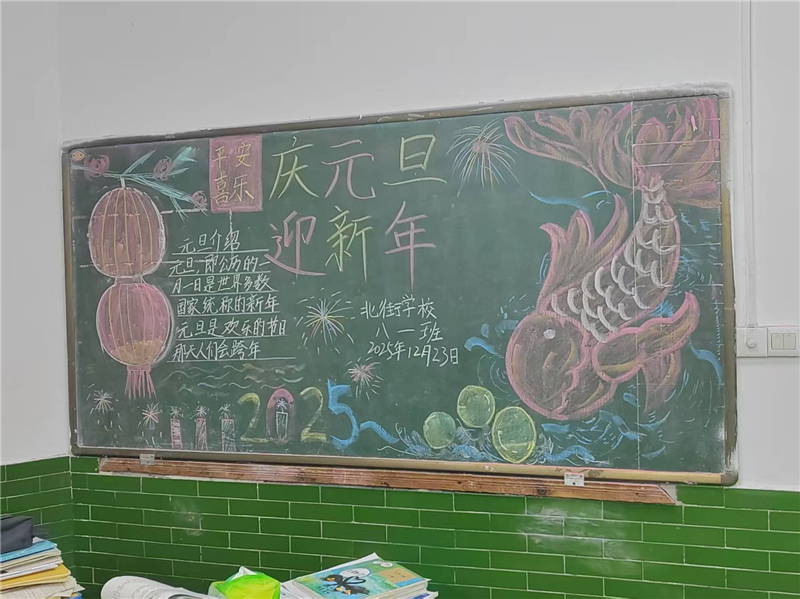 平安
喜乐
庆元旦
迎新年
元旦介绍
元旦，即公历的一
月一日是世界多数
国家统称的新年
元旦是欢乐的节日
那天人们会跨年
北街学校
八一班
2025年12月23日
2025